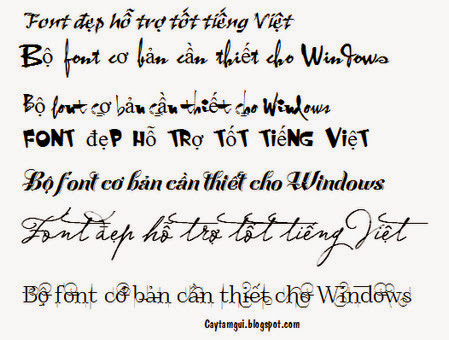 Font đẹp hỗ trợ tốt tiếng Việt
Bộ font cơ bản cần thiết cho Windows
Bộ font cơ bản cần thiết cho Windows
FONT đẹP Hỗ TRợ TốT TiếNG Việt
Bộ font cơ bản cần thiết cho Windows
Font đẹp hỗ trợ tốt tiếng Việt
Bộ font cơ bản cần thiết cho Windows
Caytamgui.blogspot.com